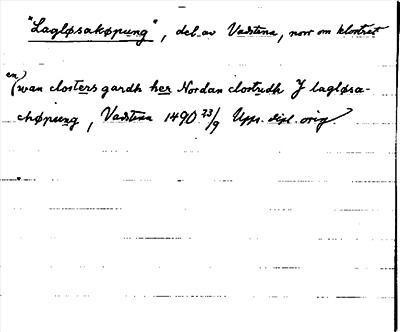 "Lagløsakøpung", del av Vadstena, norr om klostret
en) wan closters gardh her Nordan clostredh J lagløsa-
chøpung, Vadstena 1490 23/9 Upps. dipl. orig.